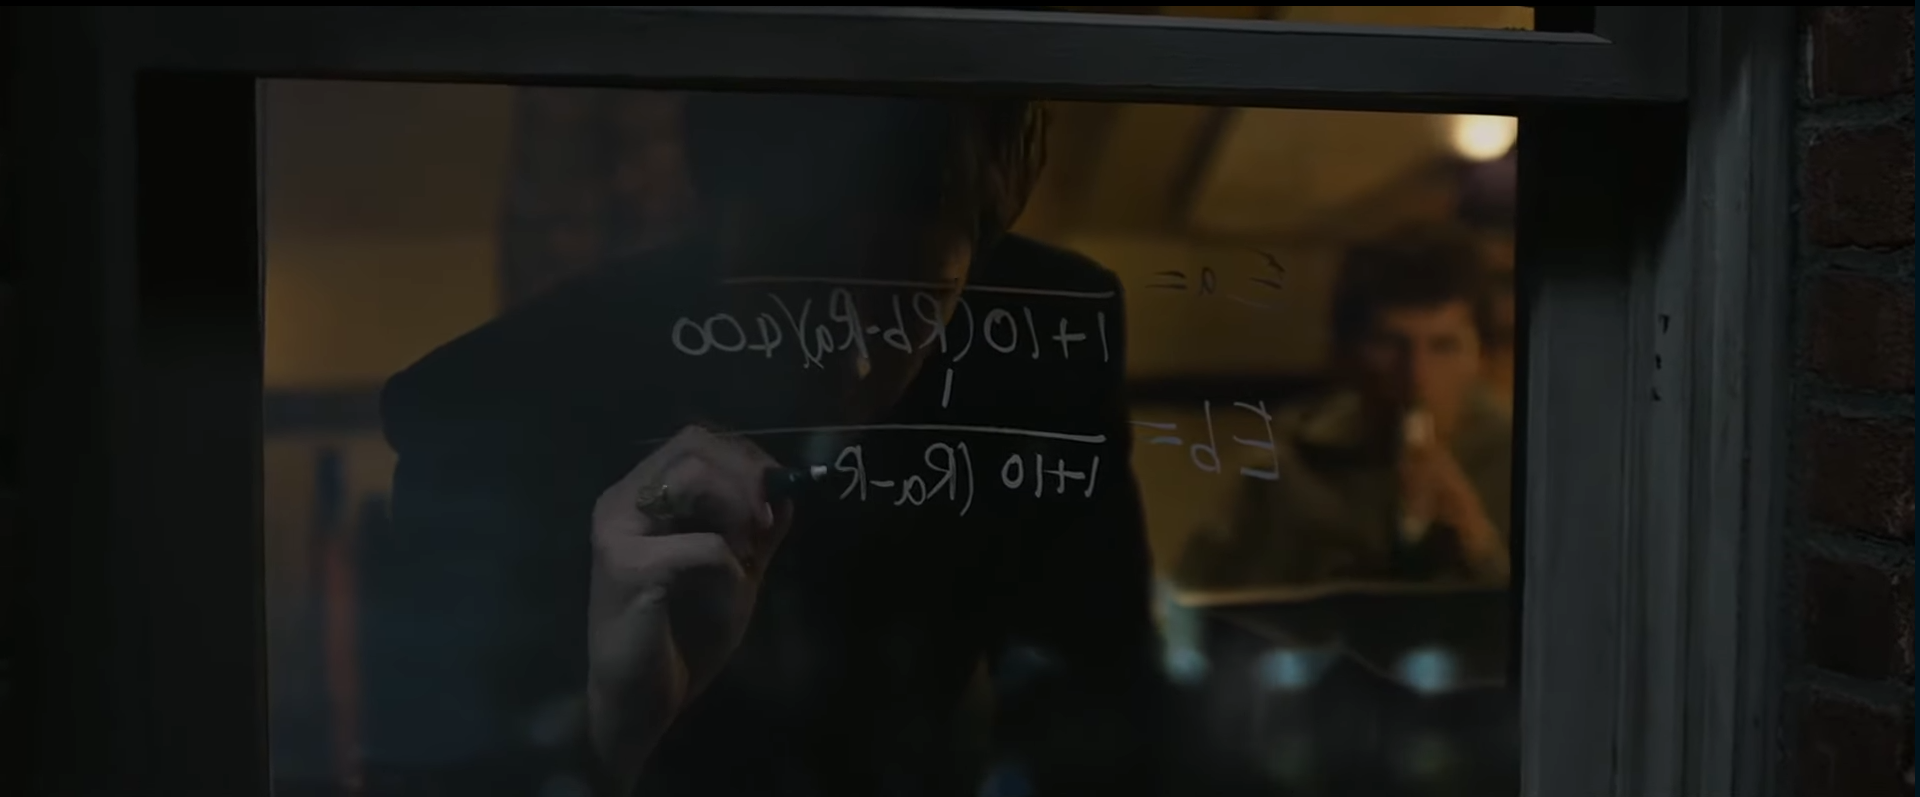 Ea =
1+10(Rb-Ra)/400
1
Eb =
1+10 (Ra-R